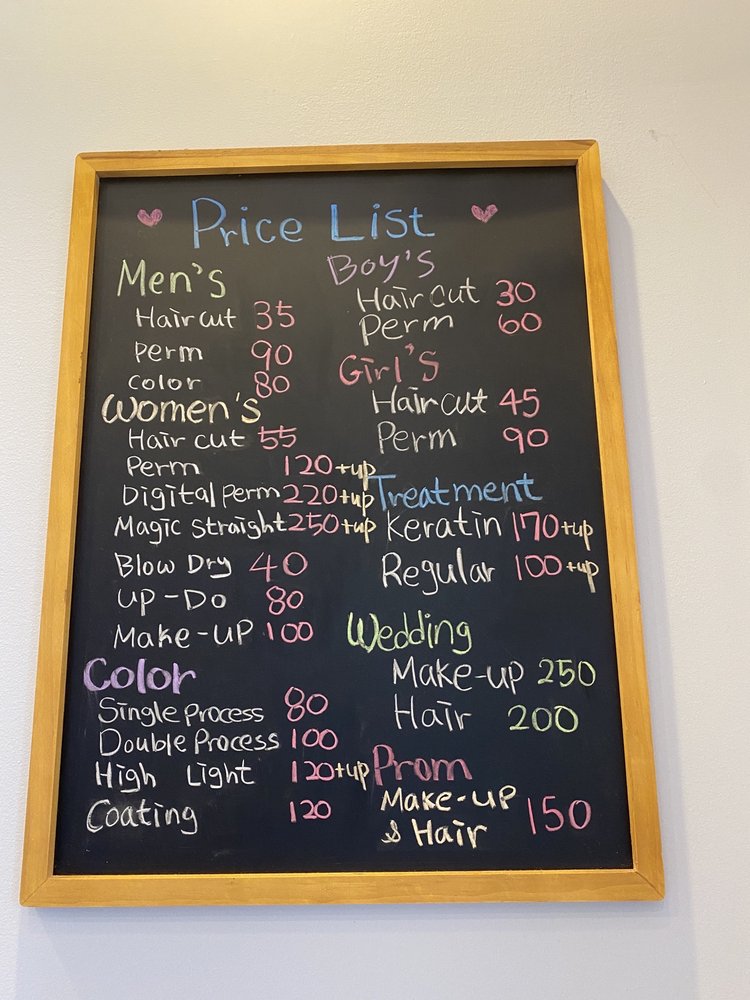 Price List
Men's
Haircut 35
Perm 90
Color 80
Women's
Hair cut 55
Perm 120+up
Digital Perm 220+up
Magic Straight 250+up
Blow Dry 40
UP-Do 80
Make-UP 100
Color
Single Process 80
Double Process 100
High Light 120+up
Coating 120
Boy's
Hair cut 30
Perm 60
Girl's
Hair cut 45
Perm 90
Treatment
Keratin 170+up
Regular 100+up
Wedding
Make-up 250
Hair 200
Prom
Make-up
& Hair 150